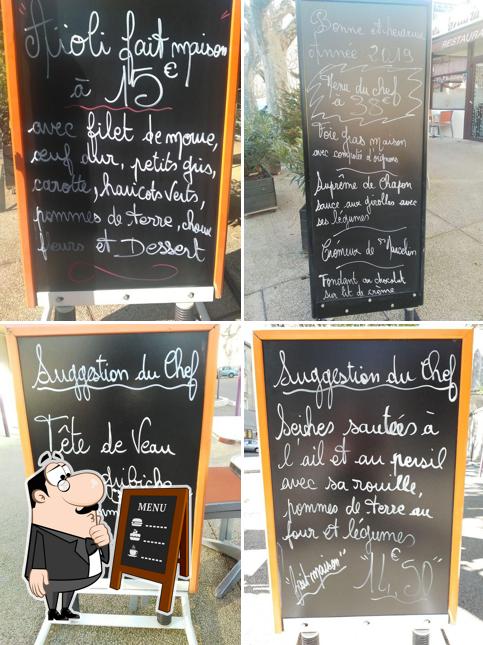 "Aïoli fait maison"
à 15€
avec filet de morue,
oeuf dur, petits gris,
carotte, haricots verts,
pommes de terre, choux
fleurs et Dessert
Bonne et heureuse
Année 2019
Menu du chef
à 38€
Foie gras maison
avec compotée d'oignons
Suprême de Chapon
sauce aux girolles avec
ses légumes
Crémeux de St Marcelin
Fondant au chocolat
sur lit de crème
RESTAURA
Suggestion du Chef
Tête de Veau
MENU
Suggestion du Chef
Seiches sautées à
l'ail et au persil
avec sa rouille,
pommes de terre au
four et légumes
"fait maison"
"14,50€"